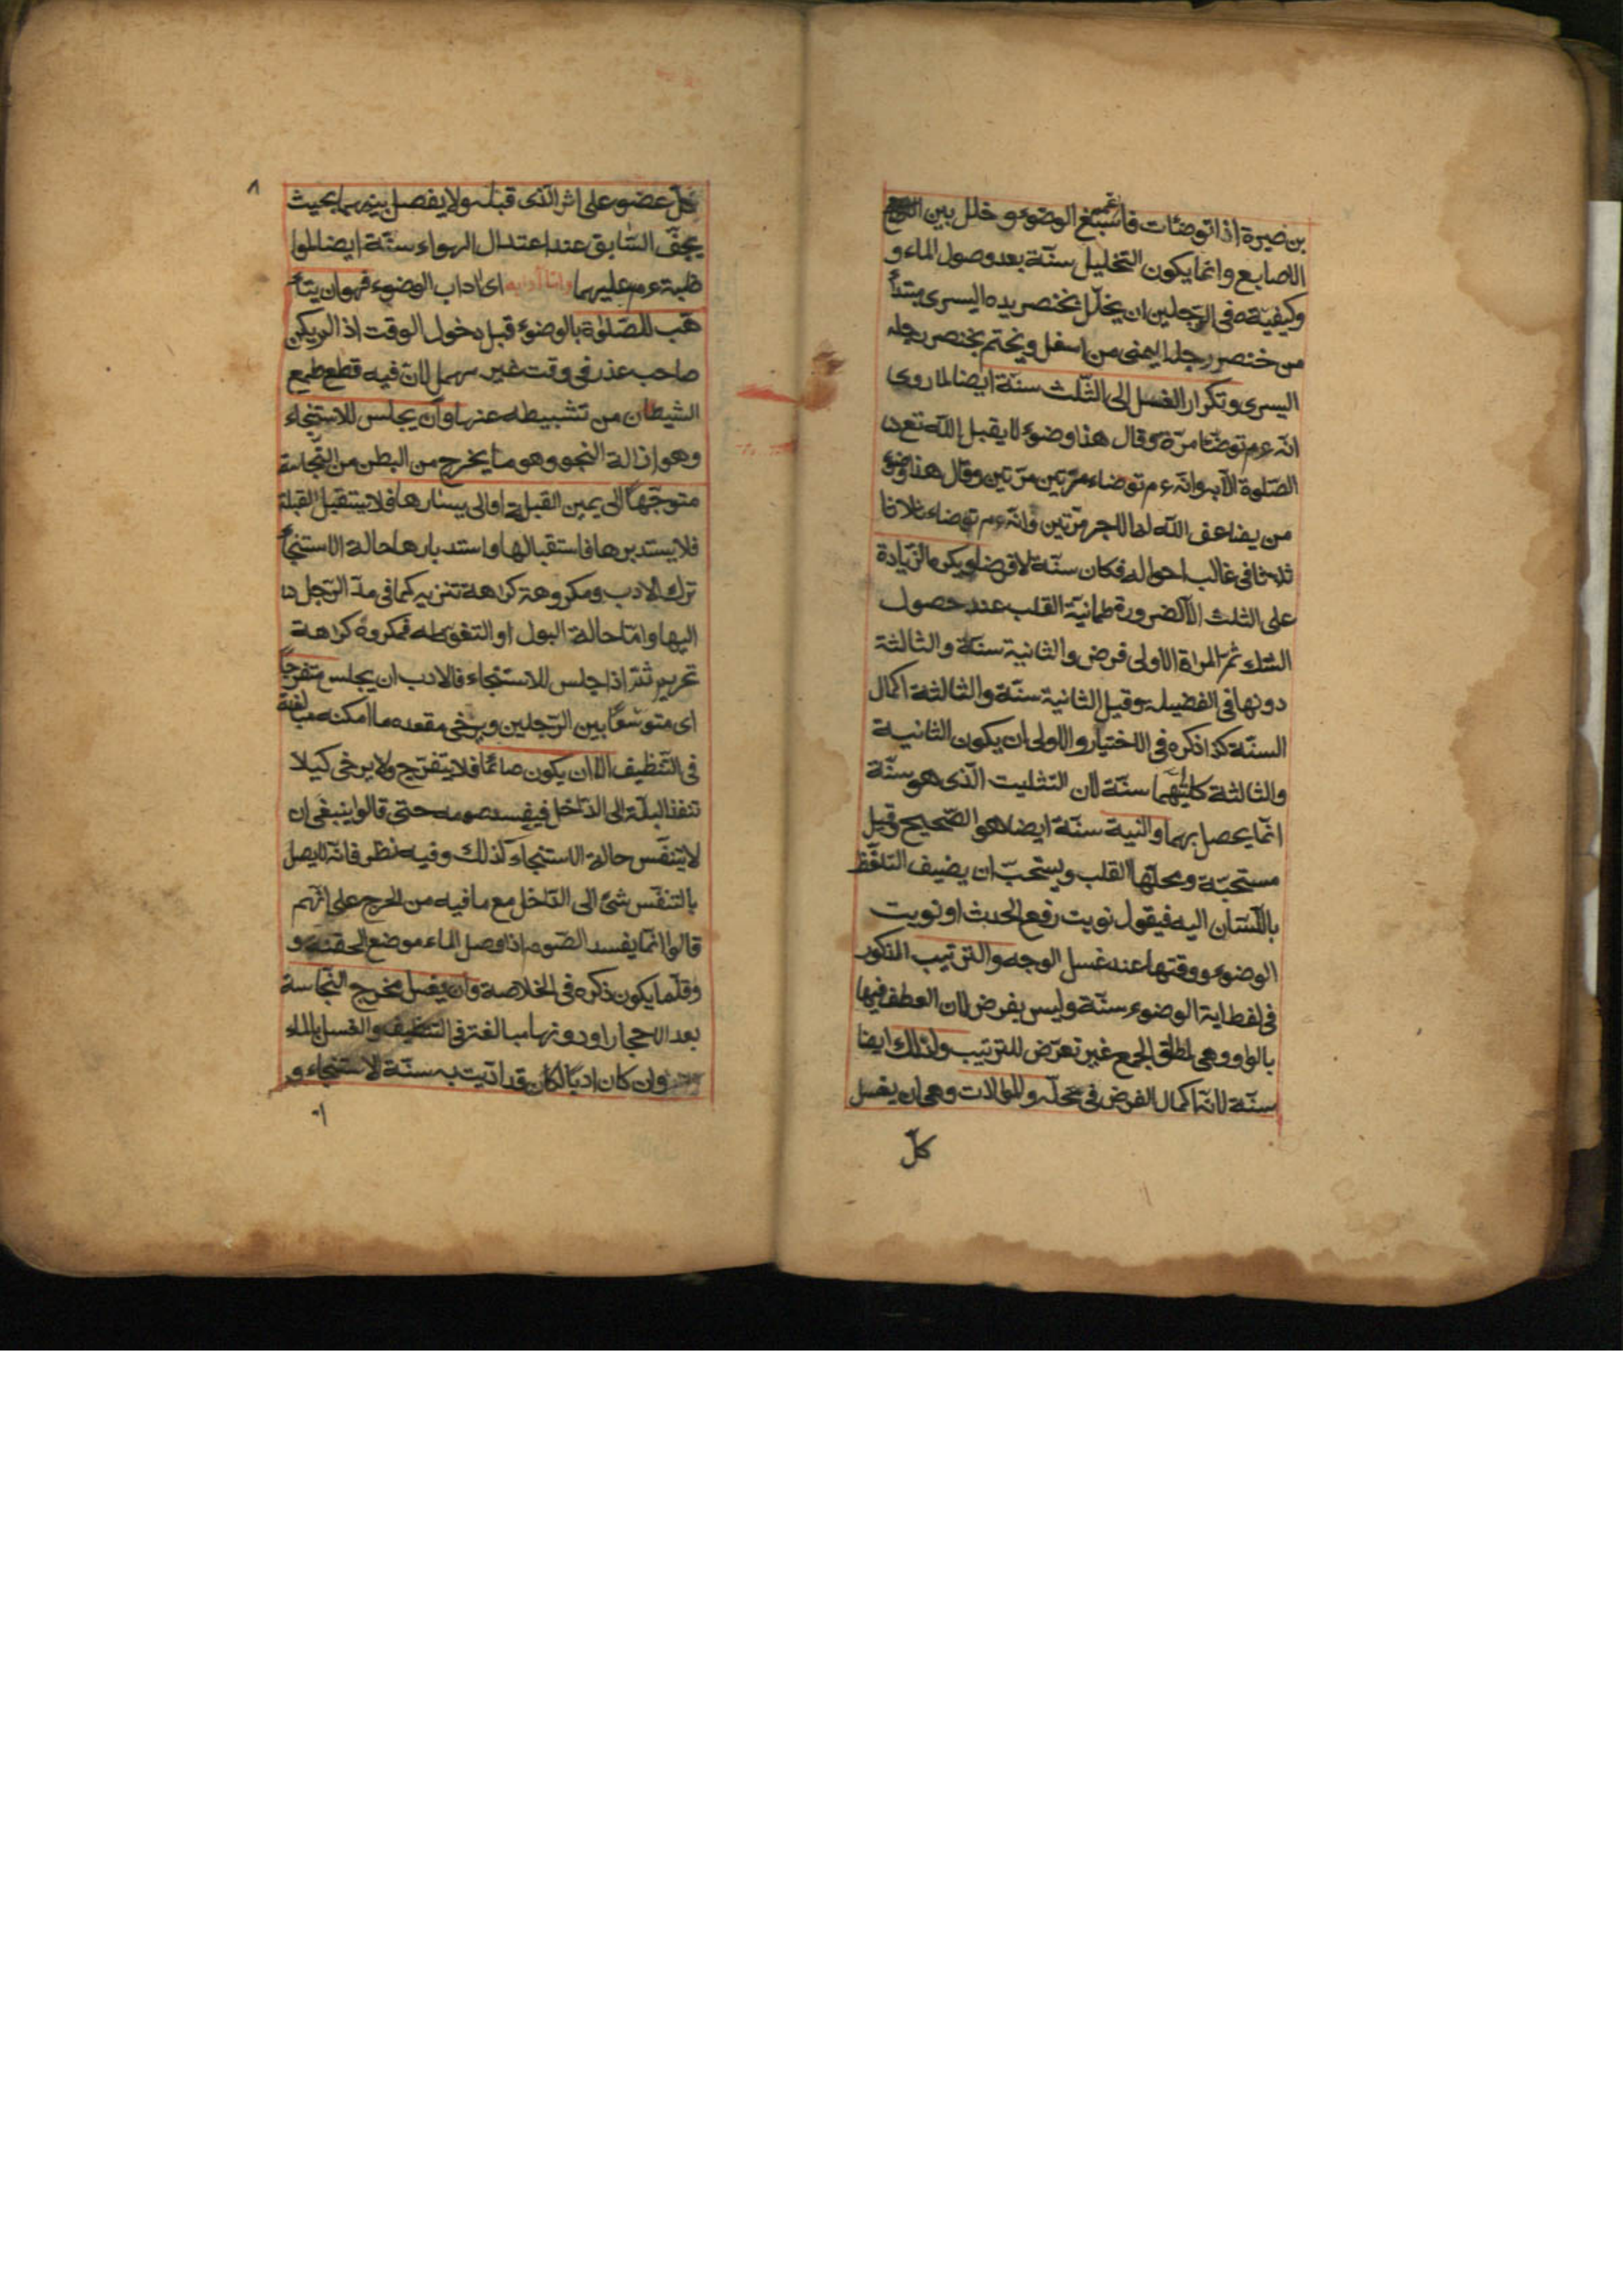 بن صبرة اذا توضئات فاسبغ الوضوء و خلل بين
الاصابع وانما يكون التخليل سنّة بعد وصول الماء و
وكيفيّته فى الرّجلين ان يخلّل بخنصر يده اليسرى مبتدأ
من خنصر رجله اليمنى من اسفل ويختم بخنصر رجله
اليسرى وتكرار الغسل الى الثّلث سنّة ايضا لما روى
انّه ءم توضّأ مرّة وقال هذا وضوء لا يقبل اللّه تع
الصّلوة الا به وانّه ءم توضاء مرّتين مرّتين وقال هذا وضوء
من يضاعف اللّه له الاجر مرّتين وانّه ءم توضاء ثلاثا
ثلاثا فى غالب احواله فكان سنّة لا فرضا ويكره الزّيادة
على الثلث الّا لضرورة طمانيّة القلب عند حصول
الشك ثم المراة الاولى فرض والثانية سنّة والثالثة
دونها فى الفضيلة وقيل الثانية سنّة والثالثة اكمال
السنّة كذا ذكره فى الاختيار والاولى ان يكون الثانية
والثالثة كلتيهما سنّة لان التثليث الّذى هو سنّة
انّما يحصل بهما والنية سنّة ايضا هو الصّحيح وقيل
مستحبّة ومحلّها القلب ويستحبّ ان يضيف التلفّظ
باللّسان اليه فيقول نويت رفع الحدث او نويت
الوضوء ووقتها عند غسل الوجه والترتيب المذكور
فى لفظ اية الوضوء سنّة وليس بفرض لان العطف فيها
بالواو وهى لمطلق الجمع غير تعرّض للترتيب ولذلك ايضا
سنّة لانّه اكمال الفرض فى محلّه والموالات وهى ان يغسل
كلّ
٨
كلّ عضو على اثر الّذى قبله ولا يفصل بينهما بحيث
يجفّ السّابق عند اعتدال الهواء سنّة ايضا للموا
ظبة ءم عليهما وامّا آدابه اى اداب الوضوء فهو ان يتأ
هّب للصّلوة بالوضوء قبل دخول الوقت اذ الم يكن
صاحب عذر فى وقت غير مهمل لانّ فيه قطع طمع
الشيطان من تشبيطه عنها وان يجلس للاستنجاء
وهو ازالة النجو وهو ما يخرج من البطن من النّجاسة
متوجّهًا الى يمين القبلة او الى يسارها فلا يستقبل القبلة
فلا يستدبرها فاستقبالها واستدبارها حالة الاستنجاء
ترك الادب ومكروهة كراهة تنزيه كما فى مدّ الرّجل
اليها وامّا حالة البول او التغوّط فمكروه كراهة
تحريم ثمّ اذا جلس للاستنجاء فالادب ان يجلس متفرّجًا
اى متوسّعًا بين الرّجلين ويرخى مقعده ما امكنه مبالغة
فى التّنظيف الّا ان يكون صائمًا فلا يتفرّج ولا يرخى كيلا
تنفذ البلّة الى الدّاخل فيفسد صومه حتى قالوا ينبغى ان
لا يتنفّس حالة الاستنجاء كذلك وفيه نظر فانّه لا يصل
بالتنفّس شئ الى الدّاخل مع ما فيه من الحرج على انّهم
قالوا انّما يفسد الصّوم اذا وصل الماء موضع الحقنة و
وقلّما يكون ذكره فى الخلاصة وان يغسل مخرج النّجاسة
بعد الاحجار او دونها مبالغة فى التنظيف والغسل بالماء
وان كان ادبًا لكان قد اتيت به سنّة الاستنجاء و